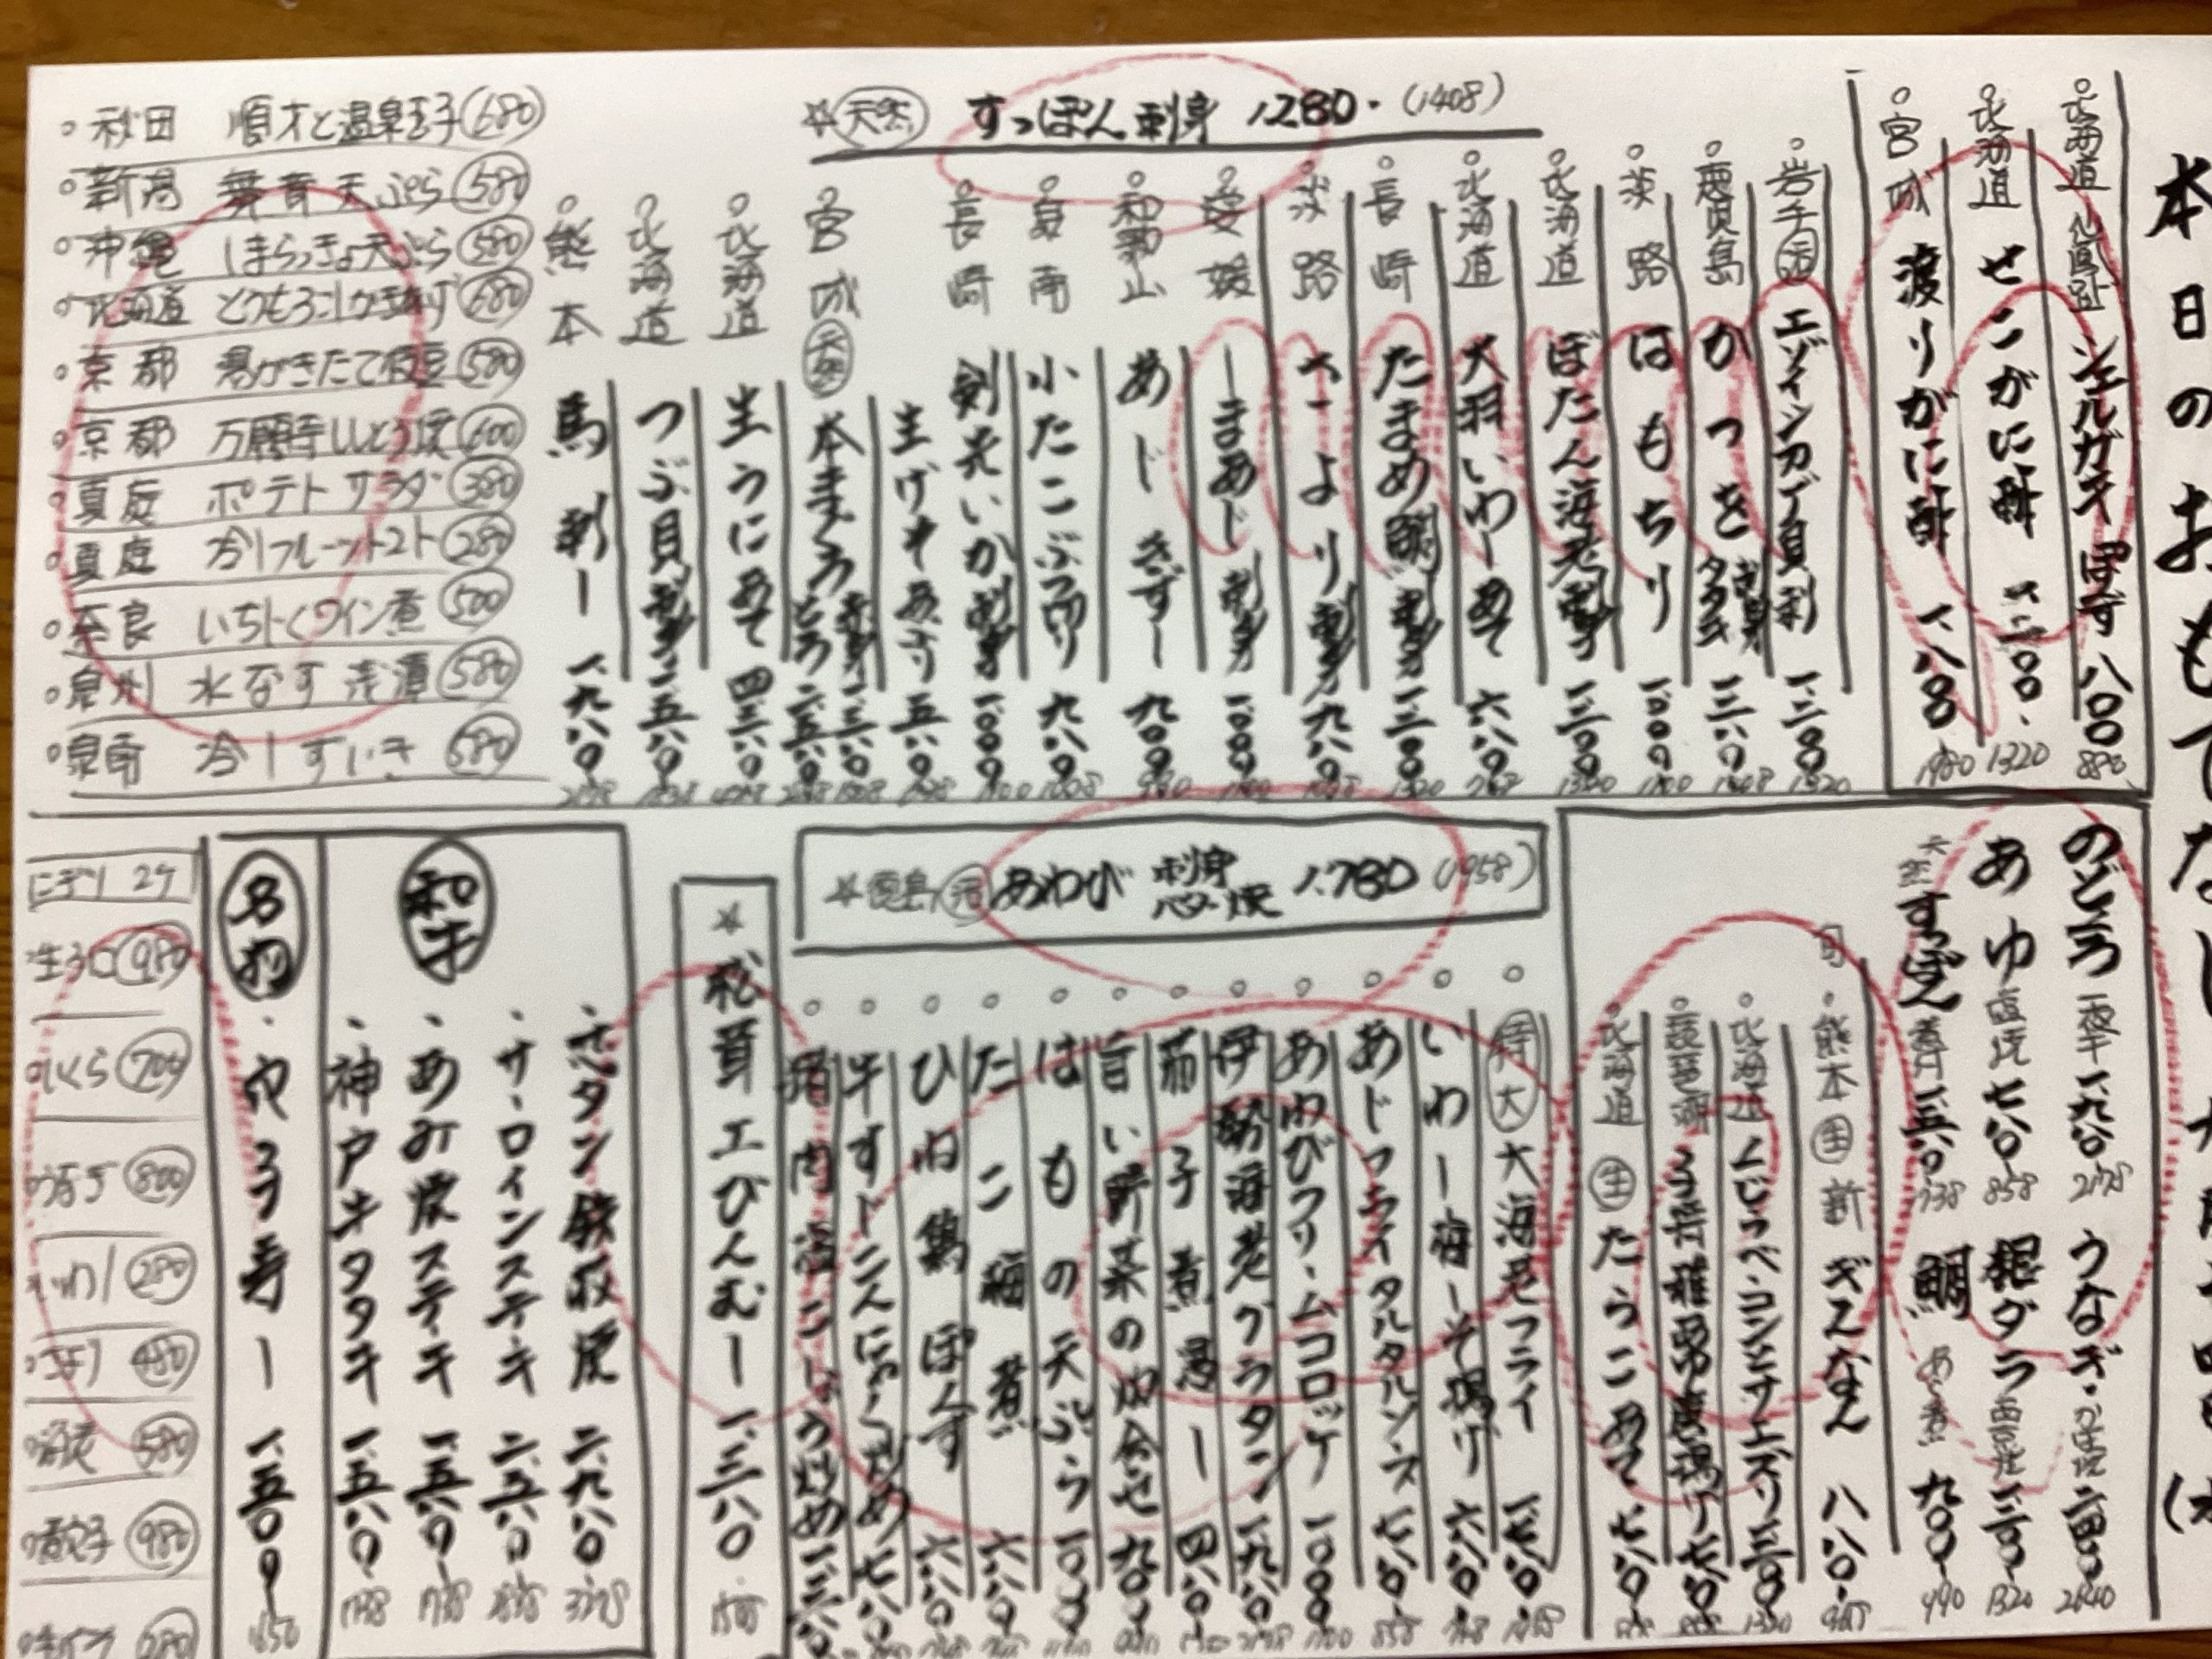 本日のおもてなし
北海道 仙鳳趾 シェルガキ ぽん酢 八〇〇 880
北海道 せこがに酢 一、二〇〇 1320
宮城 渡りがに酢 一、八〇〇 1980
☆天然 すっぽん刺身 1.280. (1408)
岩手 活 エゾイシカゲ貝刺 一、二〇〇 1320
鹿児島 かつを 刺身 タタキ 一、二八〇 1408
淡路 はもちり 一、〇〇〇 1100
北海道 ぼたん海老刺身 一、二〇〇 1320
北海道 大羽いわしあて 六八〇 748
長崎 たまめ鯛刺身 一、二〇〇 1320
淡路 さより刺身 九八〇 1078
愛媛 しまあじ刺身 一、〇〇〇 1100
和歌山 あじきずし 九〇〇 990
泉南 小たこぶつ切り 九八〇 1078
長崎 剣先いか刺身 一、〇〇〇 1100
生げそあぶり 五八〇 638
宮城 天然 本まぐろ 赤身 一、三八〇 とろ 二、五八〇
北海道 生うにあて
北海道 つぶ貝刺身
熊本 馬刺し 一、九八〇 2178
秋田 順才と温泉玉子 680
新潟 舞茸天ぷら 580
沖縄 しまらっきょ天ぷら 580
北海道 とうもろこしかきあげ 680
京都 湯がきたて枝豆 580
京都 万願寺ししとう焼 600
真庭 ポテトサラダ 380
真庭 冷しフルーツトマト 280
奈良 いちじくワイン煮 500
泉州 水なす浅漬 580
泉南 冷しずいき 580
のどぐろ 一夜干 一、九八〇 2178
うなぎ かば焼 二、四〇〇 2640
あゆ 塩焼 七八〇 858
銀ダラ 西京焼 一、二〇〇 1320
天然 すっぽん 一、五八〇 1738
鯛 あら煮 九〇〇 990
旬
熊本 生 新 ギンなん 八八〇 968
北海道 くじらベーコンとサエズリ 一、二〇〇 1320
琵琶湖 子持稚あゆ唐揚げ 七八〇 858
北海道 生 たらこあて 七八〇 858
☆徳島 活 あわび 刺身 バター焼 1.780 (1958)
特大 大海老フライ 1958
いわし梅しそ揚げ 六八〇 748
あじフライタルタルソース 七八〇 858
あわびクリームコロッケ 一、〇〇〇 1100
伊勢海老グラタン 一、九八〇 2178
茄子煮浸し 四八〇
旨い野菜の炊合せ 九〇〇 990
はもの天ぷら 一、〇〇〇 1100
たこ福煮 六八〇 748
ひね鶏ぽんず 六八〇 748
牛すじこんにゃく炒め 七八〇
猪肉塩こしょう炒め
☆松茸土びんむし 一、三八〇 1518
和牛
芯タン鉄板焼 二、九八〇 3278
サーロインステーキ 二、五八〇 2838
あみ焼ステーキ 一、五八〇 1738
神戸牛タタキ 一、五八〇 1738
名物
穴子寿し 一、五〇〇 1650
にぎり 2ケ
生とろ 980
いくら 700
うなぎ 800
いわし 280
さより 480
海老 580
280